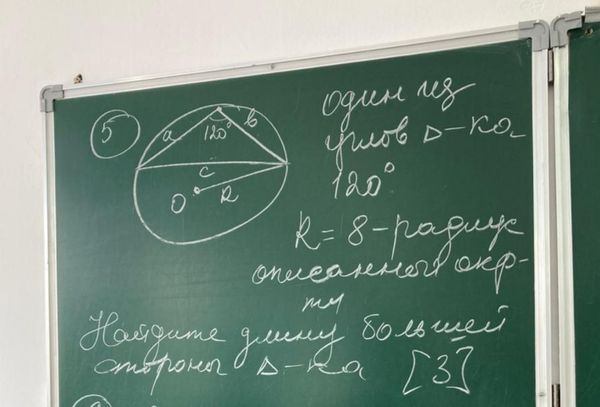 5
a
b
120°
c
O
R
один из
углов Δ-ка
120°
R = 8 - радиус
описанный окр-
ти
Найдите длину большей
стороны Δ-ка [3]